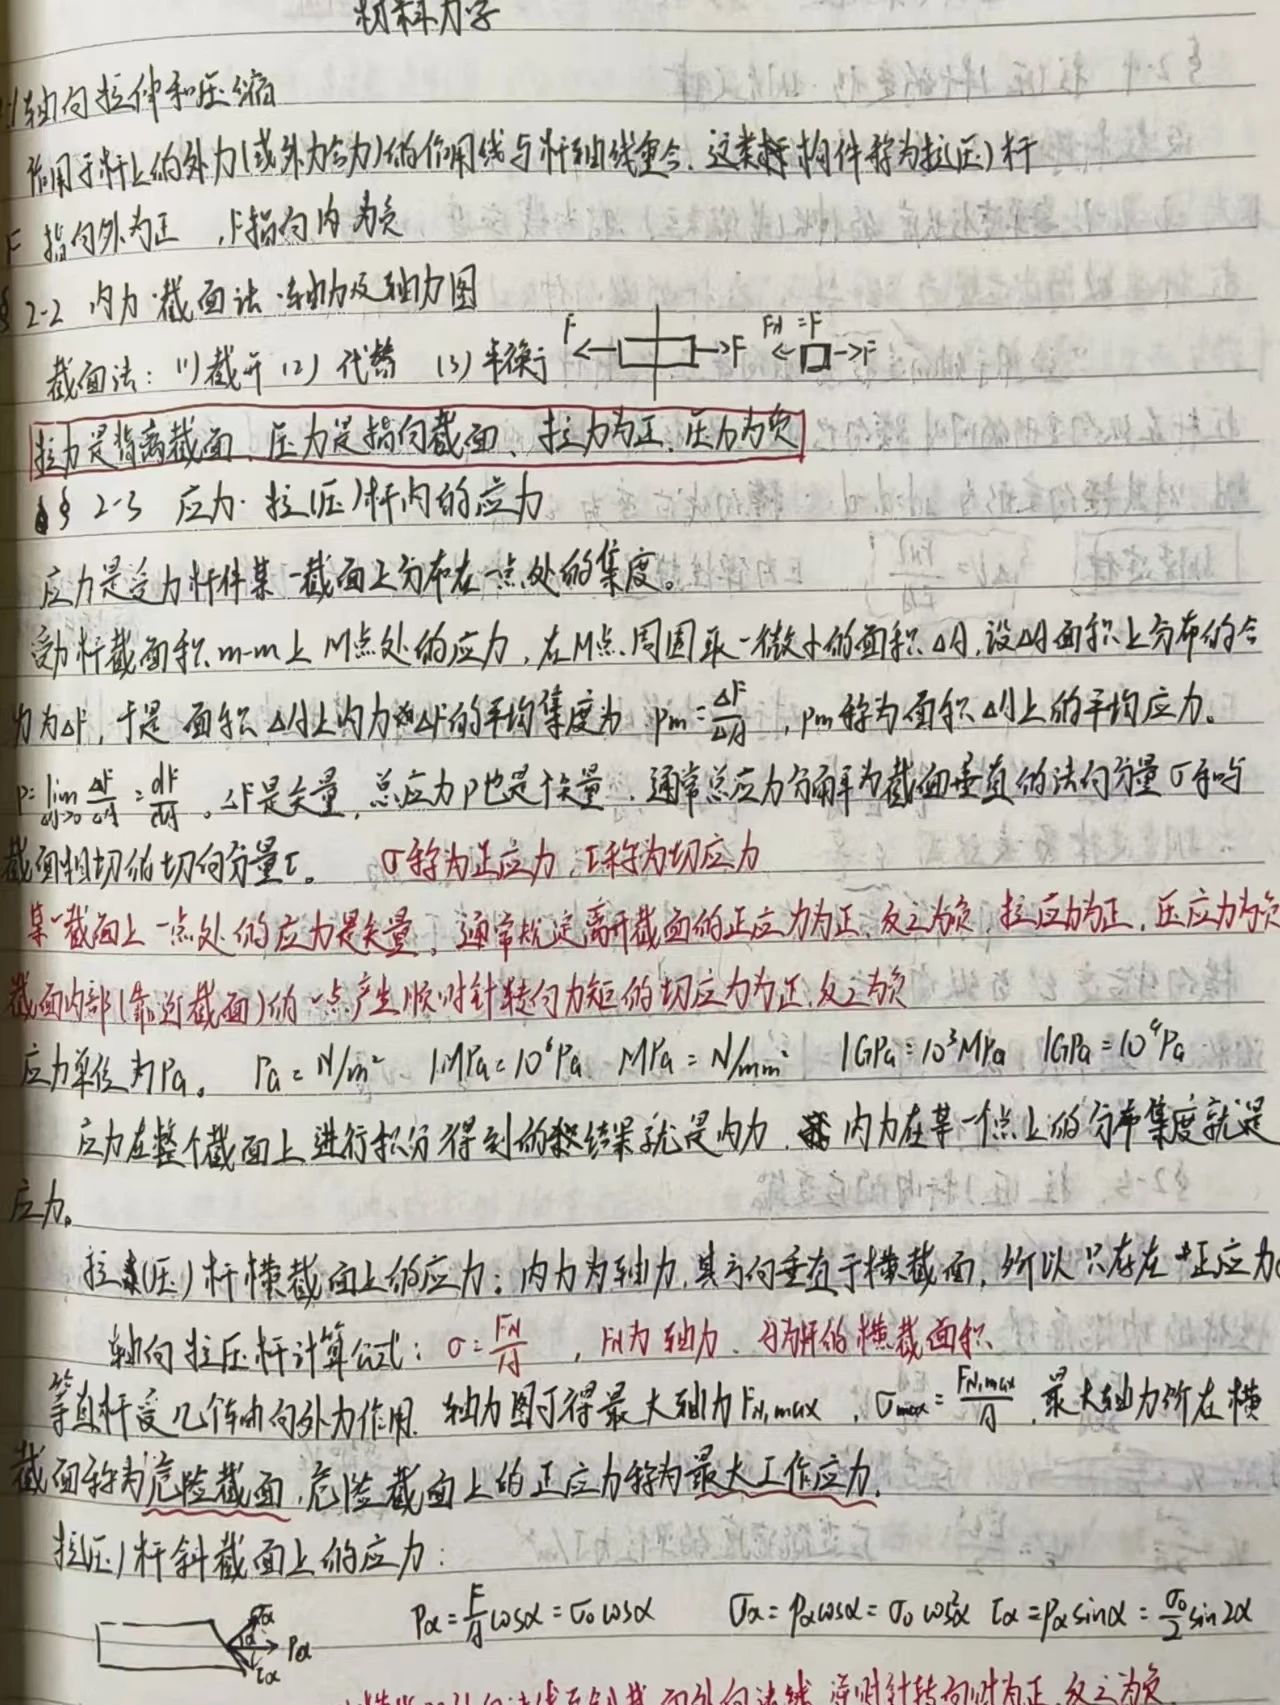 材料力学
轴向拉伸和压缩
作用于杆上的外力(或外力合力)的作用线与杆轴线重合.这类构件称为拉(压)杆
F 指向外为正 ,F指向内为负
§ 2-2 内力·截面法·轴力及轴力图
截面法: (1)截开 (2) 代替 (3) 平衡 F F FN =F F
拉力是背离截面、压力是指向截面、拉力为正、压力为负
§ 2-3 应力·拉(压)杆内的应力
应力是受力杆件某一截面上分布在一点处的集度。
受力杆截面积m-m上 M点处的应力,在M点周围取一微小的面积ΔA,设ΔA面积上分布的合
力为ΔF, 于是 面积ΔA上内力ΔF的平均集度为 pm=ΔF/ΔA ,pm称为面积ΔA上的平均应力。
P=lim ΔA→0 ΔF/ΔA=dF/dA。ΔF是矢量,总应力P也是个矢量.通常总应力分解为截面垂直的法向分量σ和与
截面相切的切向分量τ。 σ称为正应力,τ称为切应力
某一截面上一点处的应力是矢量,通常规定离开截面的正应力为正、反之为负,拉应力为正,压应力为负
截面内部(靠近截面)的一点产生顺时针转向力矩的切应力为正,反之为负
应力单位为Pa。 Pa=N/m² 1MPa=10⁶Pa MPa=N/mm² 1GPa=10³MPa 1GPa=10⁹Pa
应力在整个截面上进行积分得到的结果就是内力 内力在某一个点上的分布集度就是
应力。
拉(压)杆横截面上的应力:内力为轴力,其方向垂直于横截面,所以只存在正应力σ
轴向拉压杆计算公式:σ=FN/A ,FN为轴力、A为杆的横截面积
等直杆受几个轴向外力作用.轴力图可得最大轴力FN,max ,σmax=FN,max/A ,最大轴力所在横
截面称为危险截面,危险截面上的正应力称为最大工作应力.
拉(压)杆斜截面上的应力:
Pα=F/A cosα=σ0cosα σα=Pαcosα=σ0cos²α τα=Pαsinα=σ0/2 sin2α
σα α Pα τα
外向法线 逆时针转向时为正,反之为负